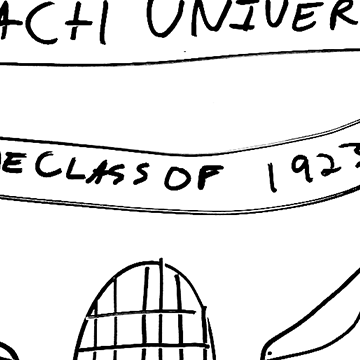 ACH UNIVER
E CLASS OF 1923